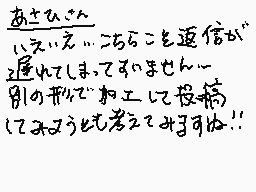 あさひさん
いえいえ…こちらこそ返信が
遅れてしまってすいません…
別の形で加工して投稿
してみようとも考えてみますね!!